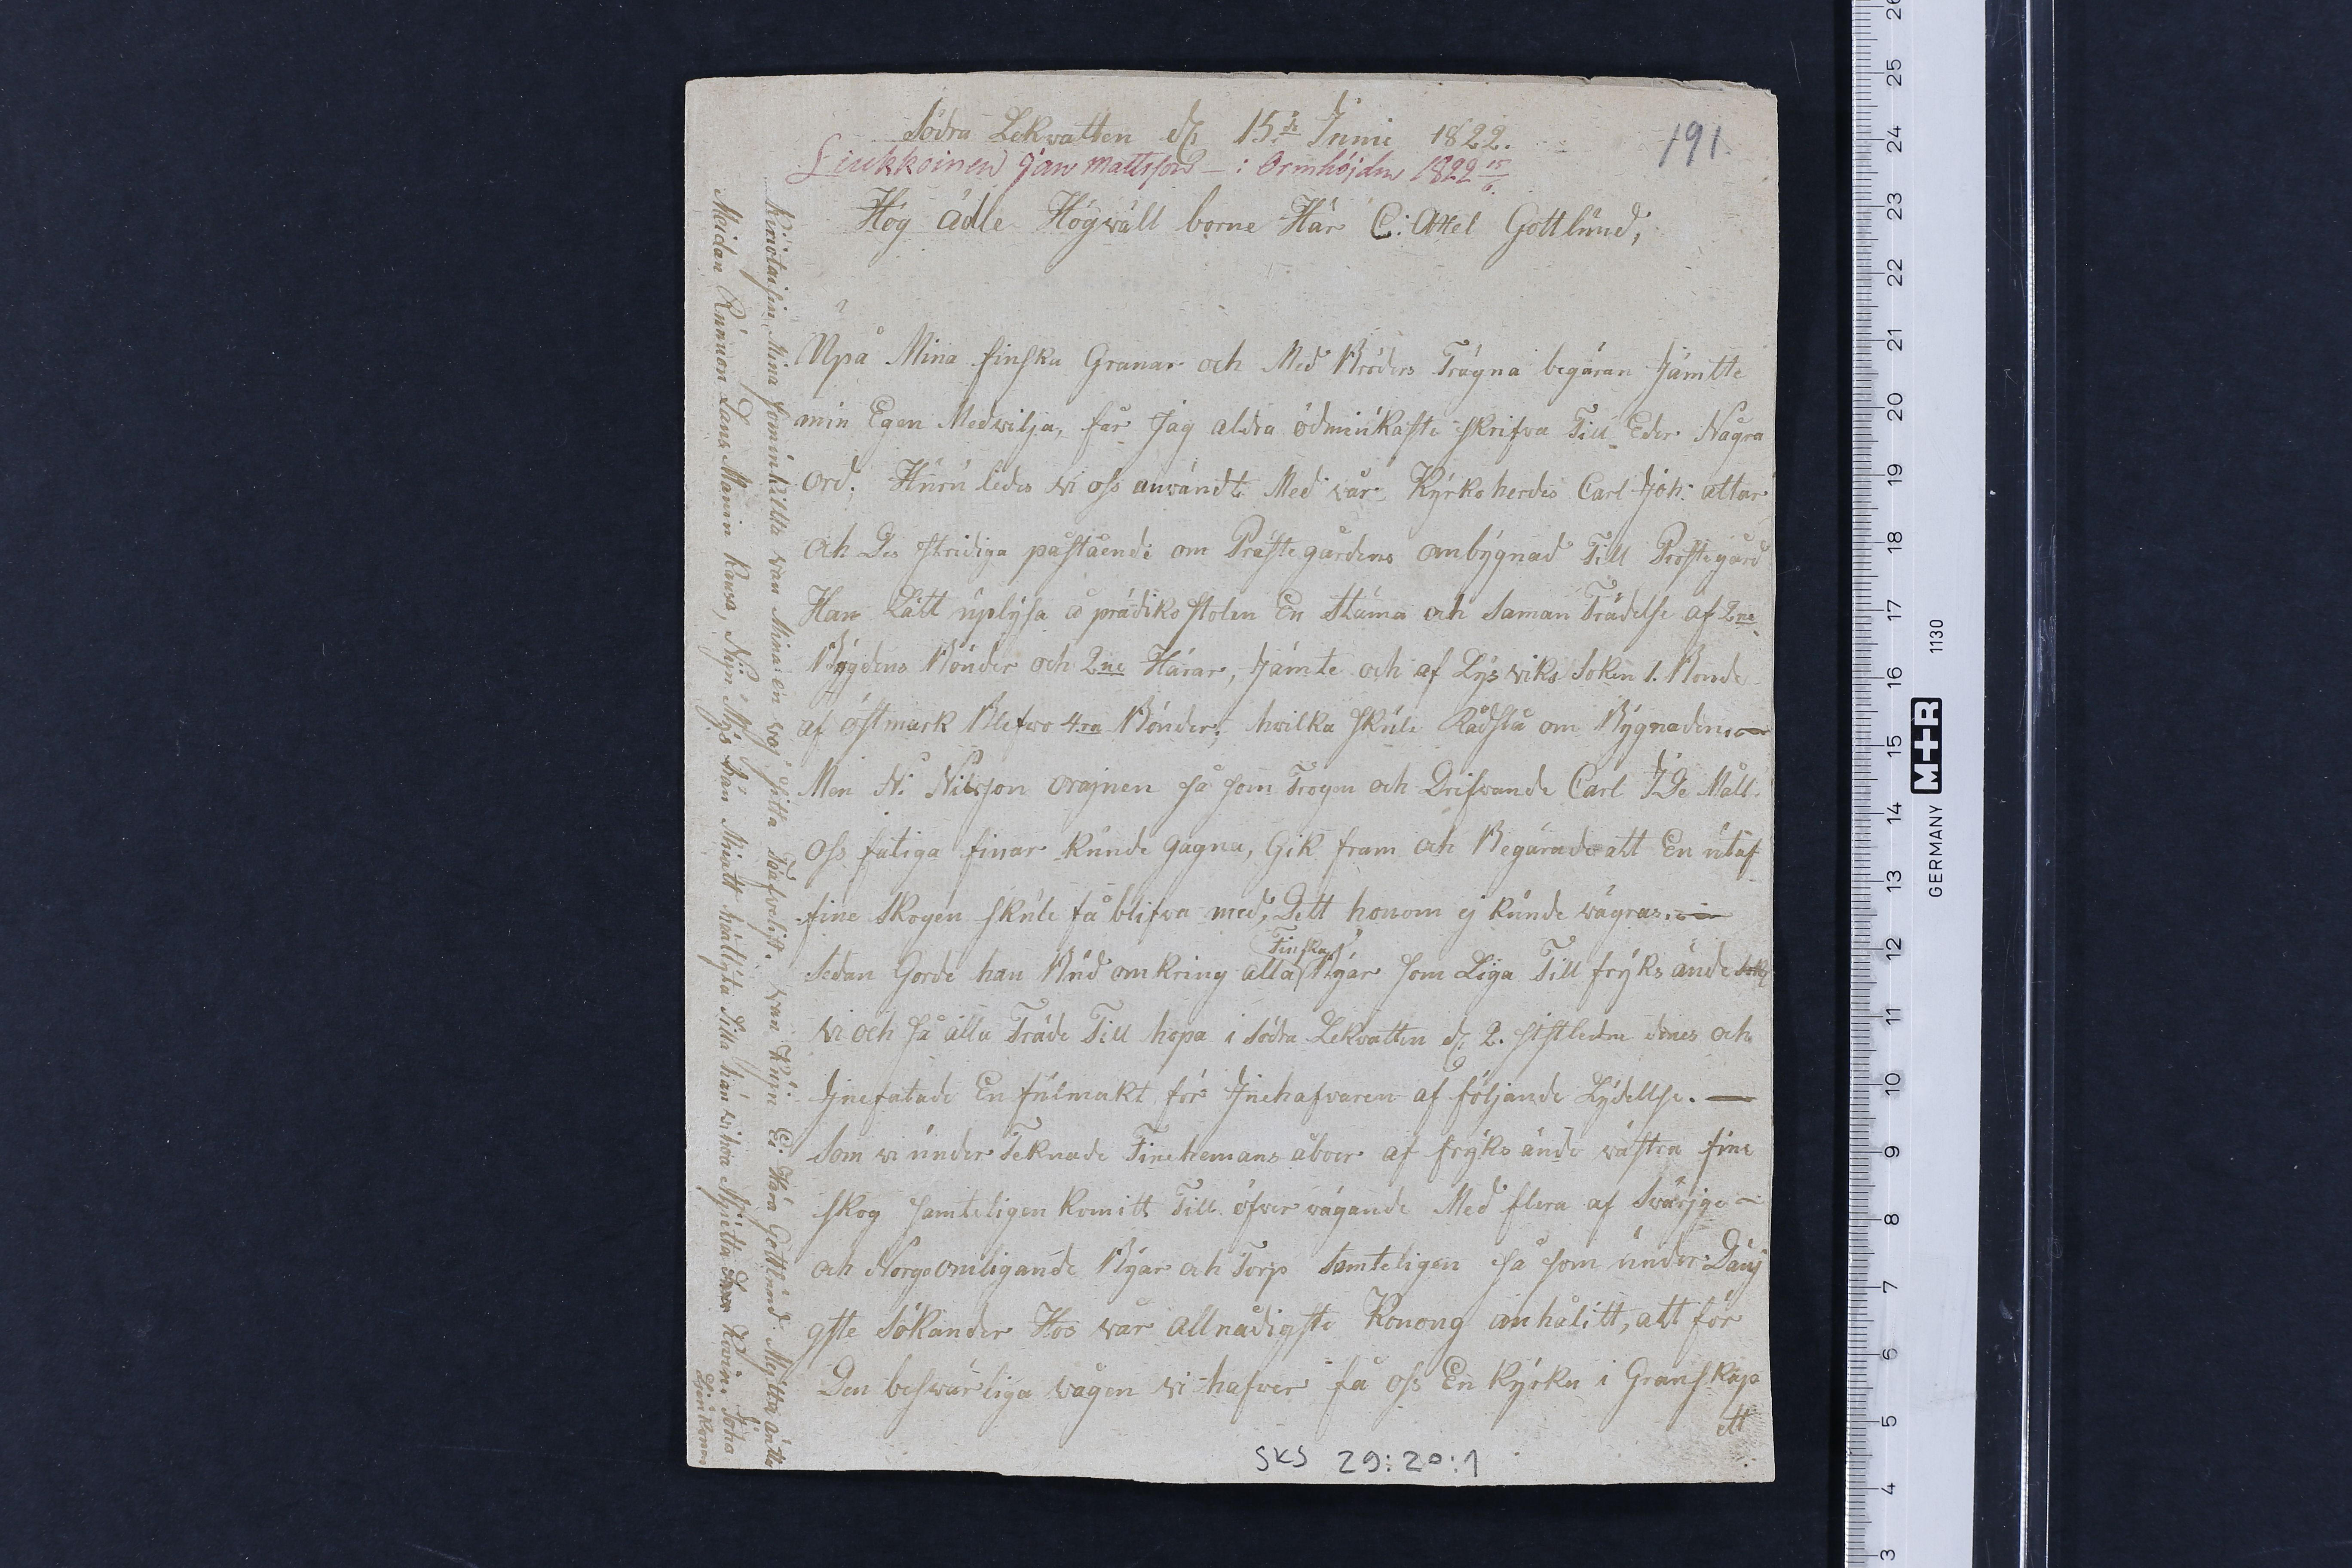 Södra Lekvatten d. 15de Junii 1822.
191.
Liukkoinen Jan Mattsson — : Ormhöjden 1822 15/6.
Hög ädle Högwält borne Här C: Axel Gottlund;
Uppå Mina finska Granar och Med Bröders Trägna begäran Jämtte
min Egen Medvilja, får Jag aldra ödmiukaste skrifva Till Eder Några
ord; Huru ledes wi oss användt Med vår Kyrkoherdes Carl Joh: attar
och Des stridiga påstående om Prästegårdens ombygnad Till Prostegård
Han Lätt uplysa å prädikostolen En Stäma och Saman Trädelse af 2ne
Bygdens Bönder och 2ne Härar, Jämte och af Lysviks Soken 1. Bonde
af östmark Blefvo 4ra Bönder; hvilka skule Rådslå om Bygnaden. —
Men N: Nilsson orajnen så som Trogen och Drifvande Carl I De Mål
Oss fatiga finar kunde gagna, Gik fram och Begärade att En utaf
fine skogen skule få blifva med, Dett honom ej kunde vägras. —
Sedan Gorde han Bud omkring alla Finska Byar som Liga Till fryks ände Sokn
wi och så alla Träde Till hopa i södra Lekvatten d. 2. sistledne denes och
Jnefatade En fulmakt för Jnehafvaren af följande Lydellse. —
Som vi under Teknade Finehemans åboer af fryks ände västra fine
skog samteligen komitt Till öfver vägande Med flera af Svärjge –
och Norge omligande Byar och Torp samteligen så som under Dånj
gste Sökander Hos vår allnådigste Konong anhålitt, att för
Den besvärliga vägen wi hafver få oss En kyrka i Granskap
ett
SKS 29:20:1
van Mina en voj van Kujn C: Hära Gottlund
Meidan Runuon Laus
GERMANY M+R 1130
26 25 24 23 22 21 20 19 18 17 16 15 14 13 12 11 10 9 8 7 6 5 4 3